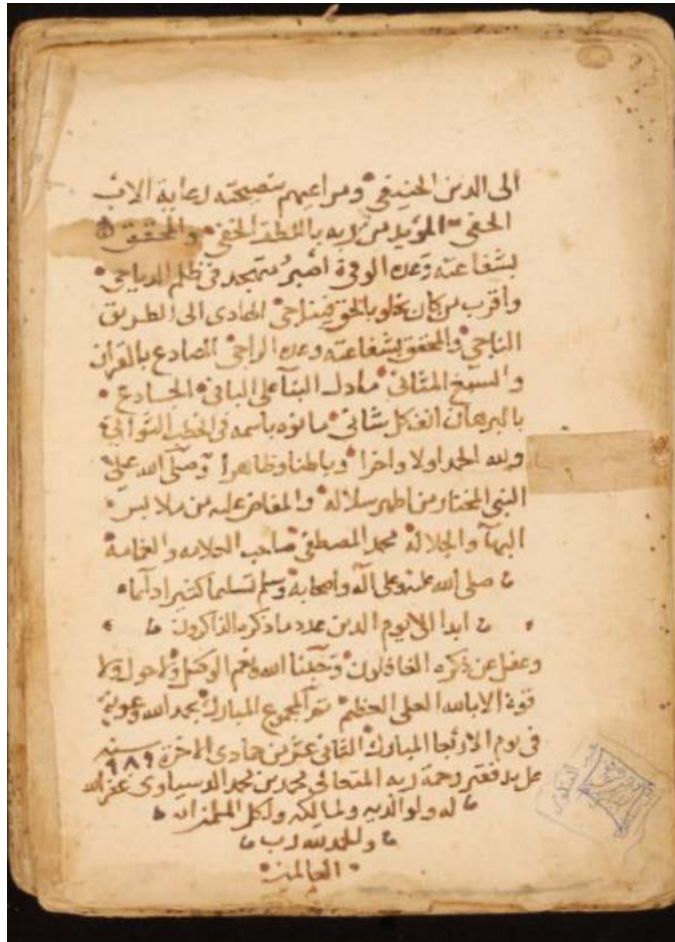 الى الدين الحنيفي ومراعيهم بنصيحته رعاية الاب
الحفي المؤيد من ربه باللطف الخفي والمحقق
بشفاعته وعده الوفي اصبر متهجد في ظلم الدياجي
واقرب من كان يخلو بالحق فيناجي الهادى الى الطريق
الناجي والمحقق بشفاعته وعده الراجي الصادع بالقران
والسبع المثاني ما دل البنآ على الباني الخادع
بالبرهان انف كل شاني ما نوه باسمه في الخطب الثواني
ولله الحمد اولا واخرا وباطنا وظاهرا وصلى الله على
النبي المختار من اطهر سلاله والمفاض عليه من ملابس
البهآ والجلاله محمد المصطفى صاحب العلامه والغمامة
صلى الله عليه وعلى آله واصحابه وسلم تسليما كثيرا دآيما
ابدا الى يوم الدين عدد ما ذكره الذاكرون
وغفل عن ذكره الغافلون وحسبنا الله ونعم الوكيل ولا حول ولا
قوة الا بالله العلي العظيم تم المجموع المبارك بحمد الله وعونه
في يوم الاربعا المبارك الثاني عشر من جمادى الاخرة سنة ٩٨٩
على يد فقير رحمة ربه المتعالي محمد بن محمد غفر الله
له ولوالديه ولمالكه ولكل المسلمين
والحمد لله رب
العالمين